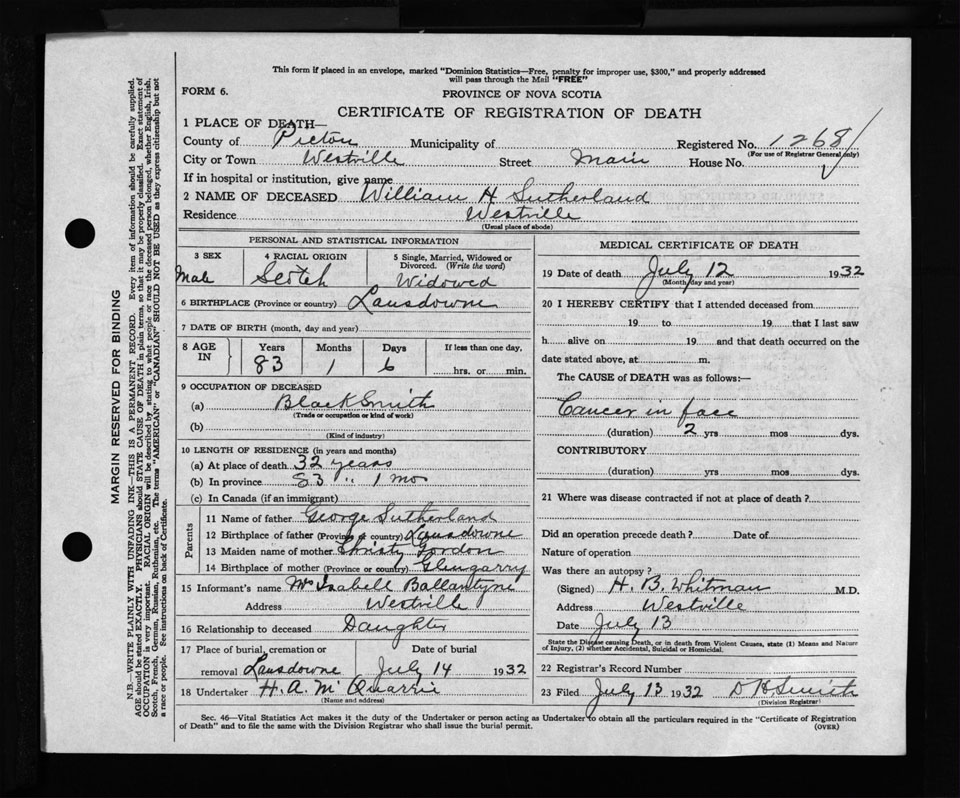 This form if placed in an envelope, marked "Dominion Statistics—Free, penalty for improper use, $300," and properly addressed
will pass through the Mail "FREE"
FORM 6.
PROVINCE OF NOVA SCOTIA
CERTIFICATE OF REGISTRATION OF DEATH
1 PLACE OF DEATH—
County of Pictou Municipality of Registered No. 1268
(For use of Registrar General only)
City or Town Westville Street Main House No.
If in hospital or institution, give name
2 NAME OF DECEASED William H Sutherland
Residence Westville
(Usual place of abode)
PERSONAL AND STATISTICAL INFORMATION
3 SEX 4 RACIAL ORIGIN 5 Single, Married, Widowed or
Divorced. (Write the word)
Male Scotch Widowed
6 BIRTHPLACE (Province or country) Lansdowne
7 DATE OF BIRTH (month, day and year)
8 AGE IN Years Months Days If less than one day,
83 1 6 hrs. or min.
9 OCCUPATION OF DECEASED
(a) BlackSmith
(Trade or occupation or kind of work)
(b)
(Kind of industry)
10 LENGTH OF RESIDENCE (in years and months)
(a) At place of death 32 years
(b) In province 83 " 1 mo
(c) In Canada (if an immigrant)
Parents
11 Name of father George Sutherland
12 Birthplace of father (Province or country) Lansdowne
13 Maiden name of mother Christy Gordon
14 Birthplace of mother (Province or country) Glengarry
15 Informant's name Mrs Isabell Ballantyne
Address Westville
16 Relationship to deceased Daughter
17 Place of burial, cremation or Date of burial
removal Lansdowne July 14 1932
18 Undertaker H. A. McQuarrie
(Name and address)
MEDICAL CERTIFICATE OF DEATH
19 Date of death July 12 1932
(Month, day and year)
20 I HEREBY CERTIFY that I attended deceased from
19 to 19 that I last saw
h alive on 19 and that death occurred on the
date stated above, at m.
The CAUSE of DEATH was as follows:—
Cancer in face
(duration) 2 yrs mos dys.
CONTRIBUTORY
(duration) yrs mos dys.
21 Where was disease contracted if not at place of death?
Did an operation precede death? Date of
Nature of operation
Was there an autopsy?
(Signed) H. B. Whitman M.D.
Address Westville
Date July 13
State the Disease causing Death, or in death from Violent Causes, state (1) Means and Nature
of Injury, (2) whether Accidental, Suicidal or Homicidal.
22 Registrar's Record Number
23 Filed July 13 1932 D H Smith
(Division Registrar)
Sec. 46—Vital Statistics Act makes it the duty of the Undertaker or person acting as Undertaker to obtain all the particulars required in the "Certificate of Registration
of Death" and to file the same with the Division Registrar who shall issue the burial permit.
(OVER)
MARGIN RESERVED FOR BINDING
N.B.—WRITE PLAINLY WITH UNFADING INK—THIS IS A PERMANENT RECORD. Every item of information should be carefully supplied.
AGE should be stated EXACTLY. PHYSICIANS should STATE CAUSE OF DEATH in plain terms, so that it may be properly classified. Exact statement of
OCCUPATION is very important. RACIAL ORIGIN will be described by stating to what people or race the deceased person belonged, whether English, Irish,
Scotch, French, German, Russian, Ruthenian, etc. The terms "AMERICAN" or "CANADIAN" SHOULD NOT BE USED as they express citizenship but not
a race or people. See instructions on back of Certificate.